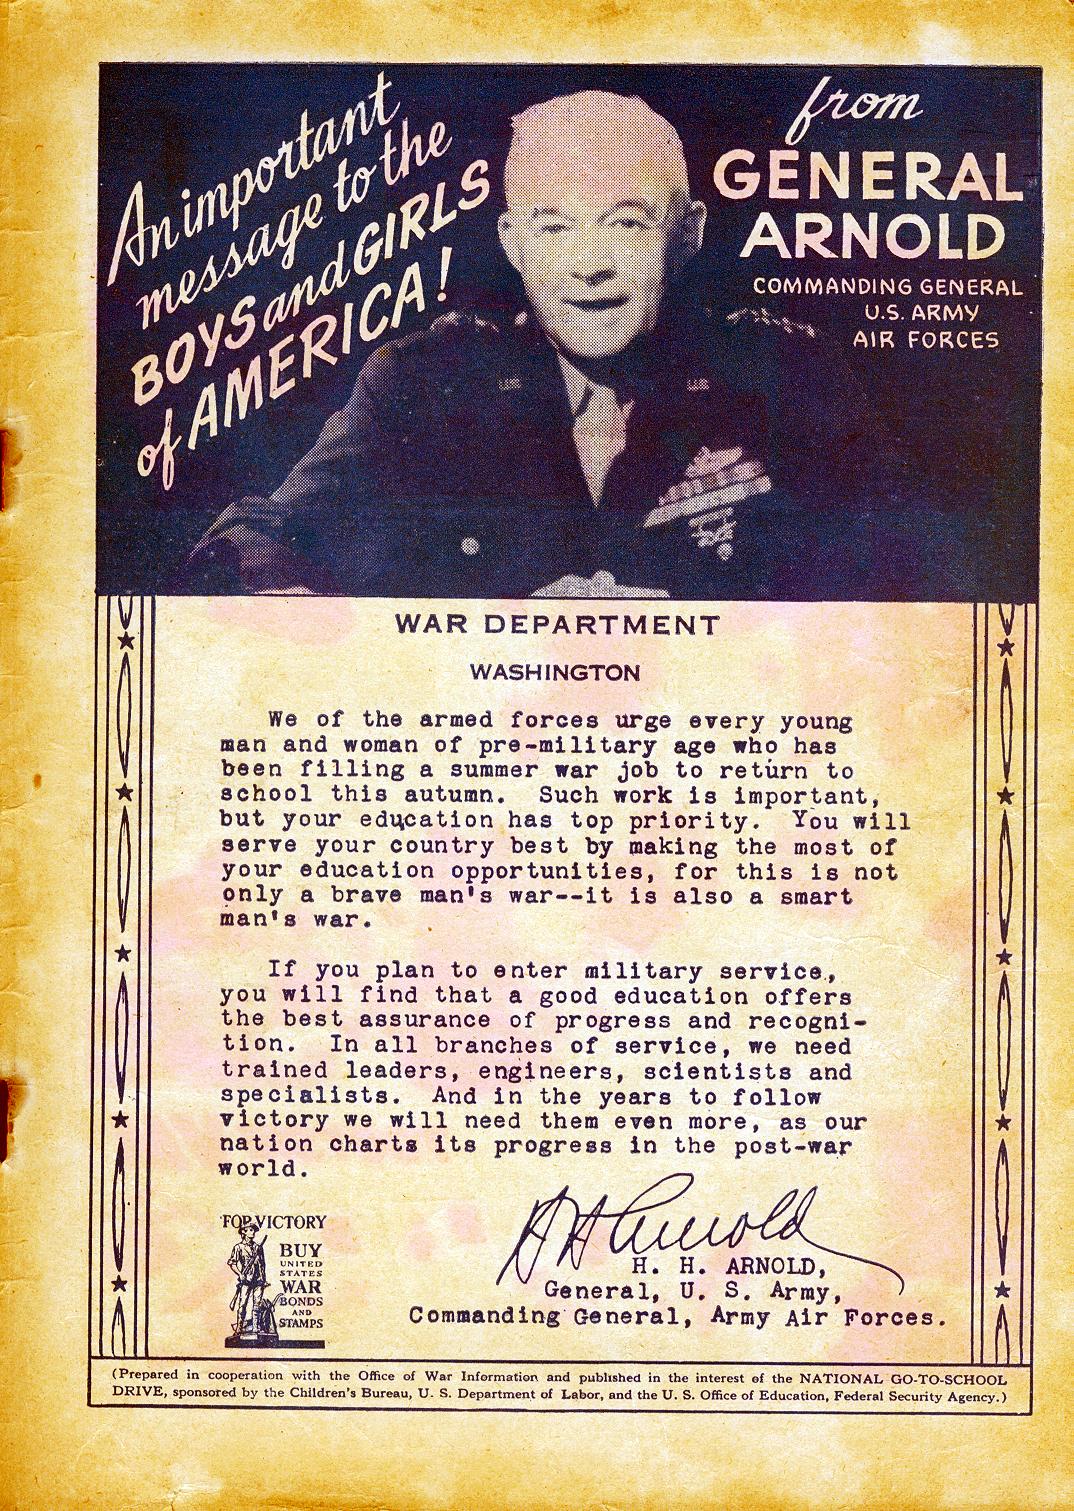 An important
message to the
BOYS and GIRLS
of AMERICA!
from
GENERAL
ARNOLD
COMMANDING GENERAL
U.S. ARMY
AIR FORCES
WAR DEPARTMENT
WASHINGTON
We of the armed forces urge every young
man and woman of pre-military age who has
been filling a summer war job to return to
school this autumn. Such work is important,
but your education has top priority. You will
serve your country best by making the most of
your education opportunities, for this is not
only a brave man's war--it is also a smart
man's war.
If you plan to enter military service,
you will find that a good education offers
the best assurance of progress and recogni-
tion. In all branches of service, we need
trained leaders, engineers, scientists and
specialists. And in the years to follow
victory we will need them even more, as our
nation charts its progress in the post-war
world.
H H Arnold
H. H. ARNOLD,
General, U. S. Army,
Commanding General, Army Air Forces.
FOR VICTORY
BUY
UNITED
STATES
WAR
BONDS
AND
STAMPS
(Prepared in cooperation with the Office of War Information and published in the interest of the NATIONAL GO-TO-SCHOOL
DRIVE, sponsored by the Children's Bureau, U. S. Department of Labor, and the U. S. Office of Education, Federal Security Agency.)